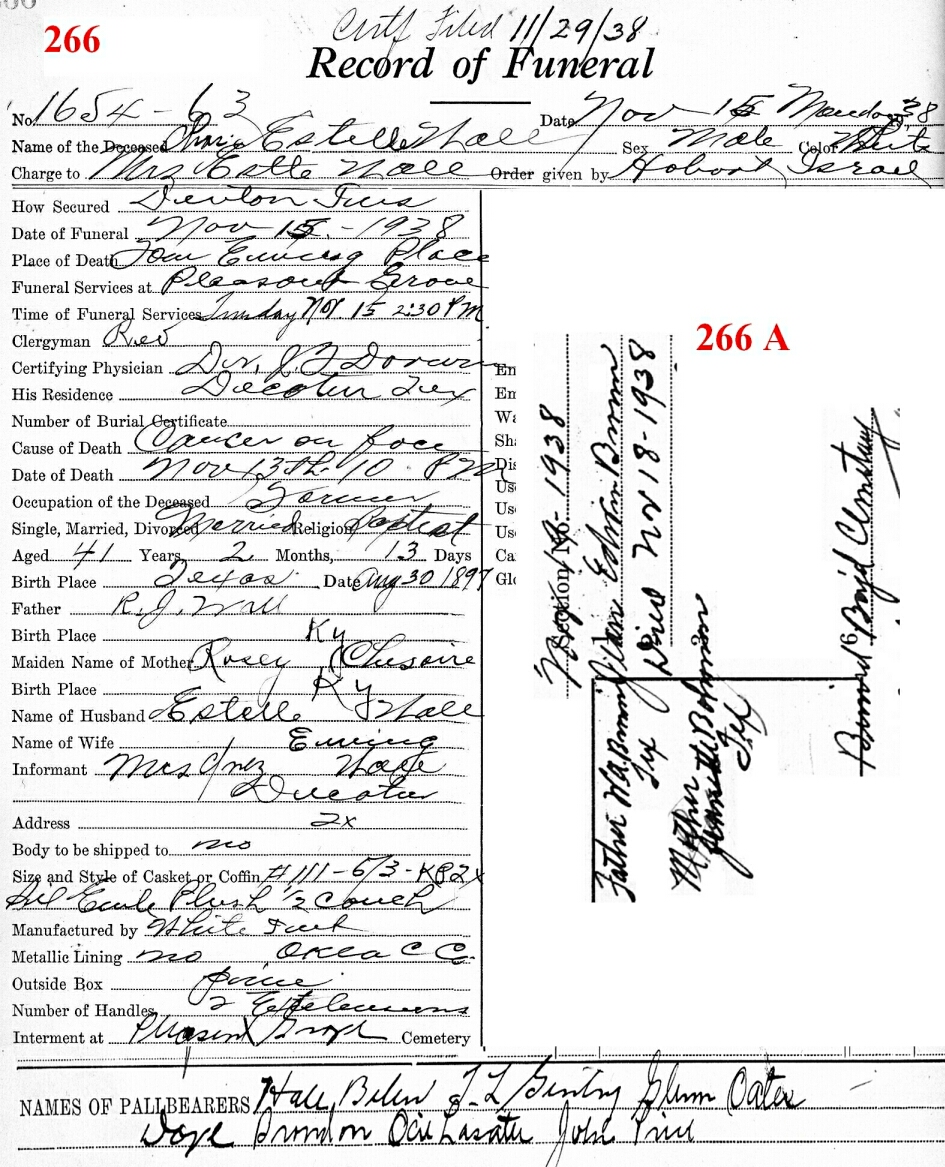 266
Certf Filed 11/29/38
Record of Funeral
No. 1654-63 Date Nov 15 Monday 38
Name of the Deceased Estelle Hall Sex Male Color White
Charge to Mrs Estle Hall Order given by Hobart Israel
How Secured
Date of Funeral Nov 15 - 1938
Place of Death Tom Ewing Place
Funeral Services at Pleasant Grove
Time of Funeral Services Nov. 15 2:30 PM
Clergyman Rev
Certifying Physician Dr. J.
His Residence Decatur Tex
Number of Burial Certificate
Cause of Death Cancer on face
Date of Death Nov 13th 10 PM
Occupation of the Deceased Farmer
Single, Married, Divorced Married Religion Baptist
Aged 41 Years, 2 Months, 13 Days
Birth Place Texas Date Aug 30 1897
Father R. J. Hall
Birth Place Ky
Maiden Name of Mother Rosey
Birth Place Ky
Name of Husband Estelle Hall
Name of Wife Ewing
Informant Mrs Inez Hall
Decatur
Address Tx
Body to be shipped to no
Size and Style of Casket or Coffin #111-6/3-
Plush 1/2 Couch
Manufactured by White
Metallic Lining no Okla C Co.
Outside Box pine
Number of Handles 2 Extensions
Interment at Cemetery
NAMES OF PALLBEARERS Hall J. L. Gentry Glenn Oates
Doyle Brandon Ocie Lasater John
266 A
En
Em
Wa
Sha
Dis
Use
Use
Use
Ca
Glo
Section No. 1938
Edwin
Died Nov 18-1938
Father
Tex
Mother
Tex
6 Boyd Cemetary